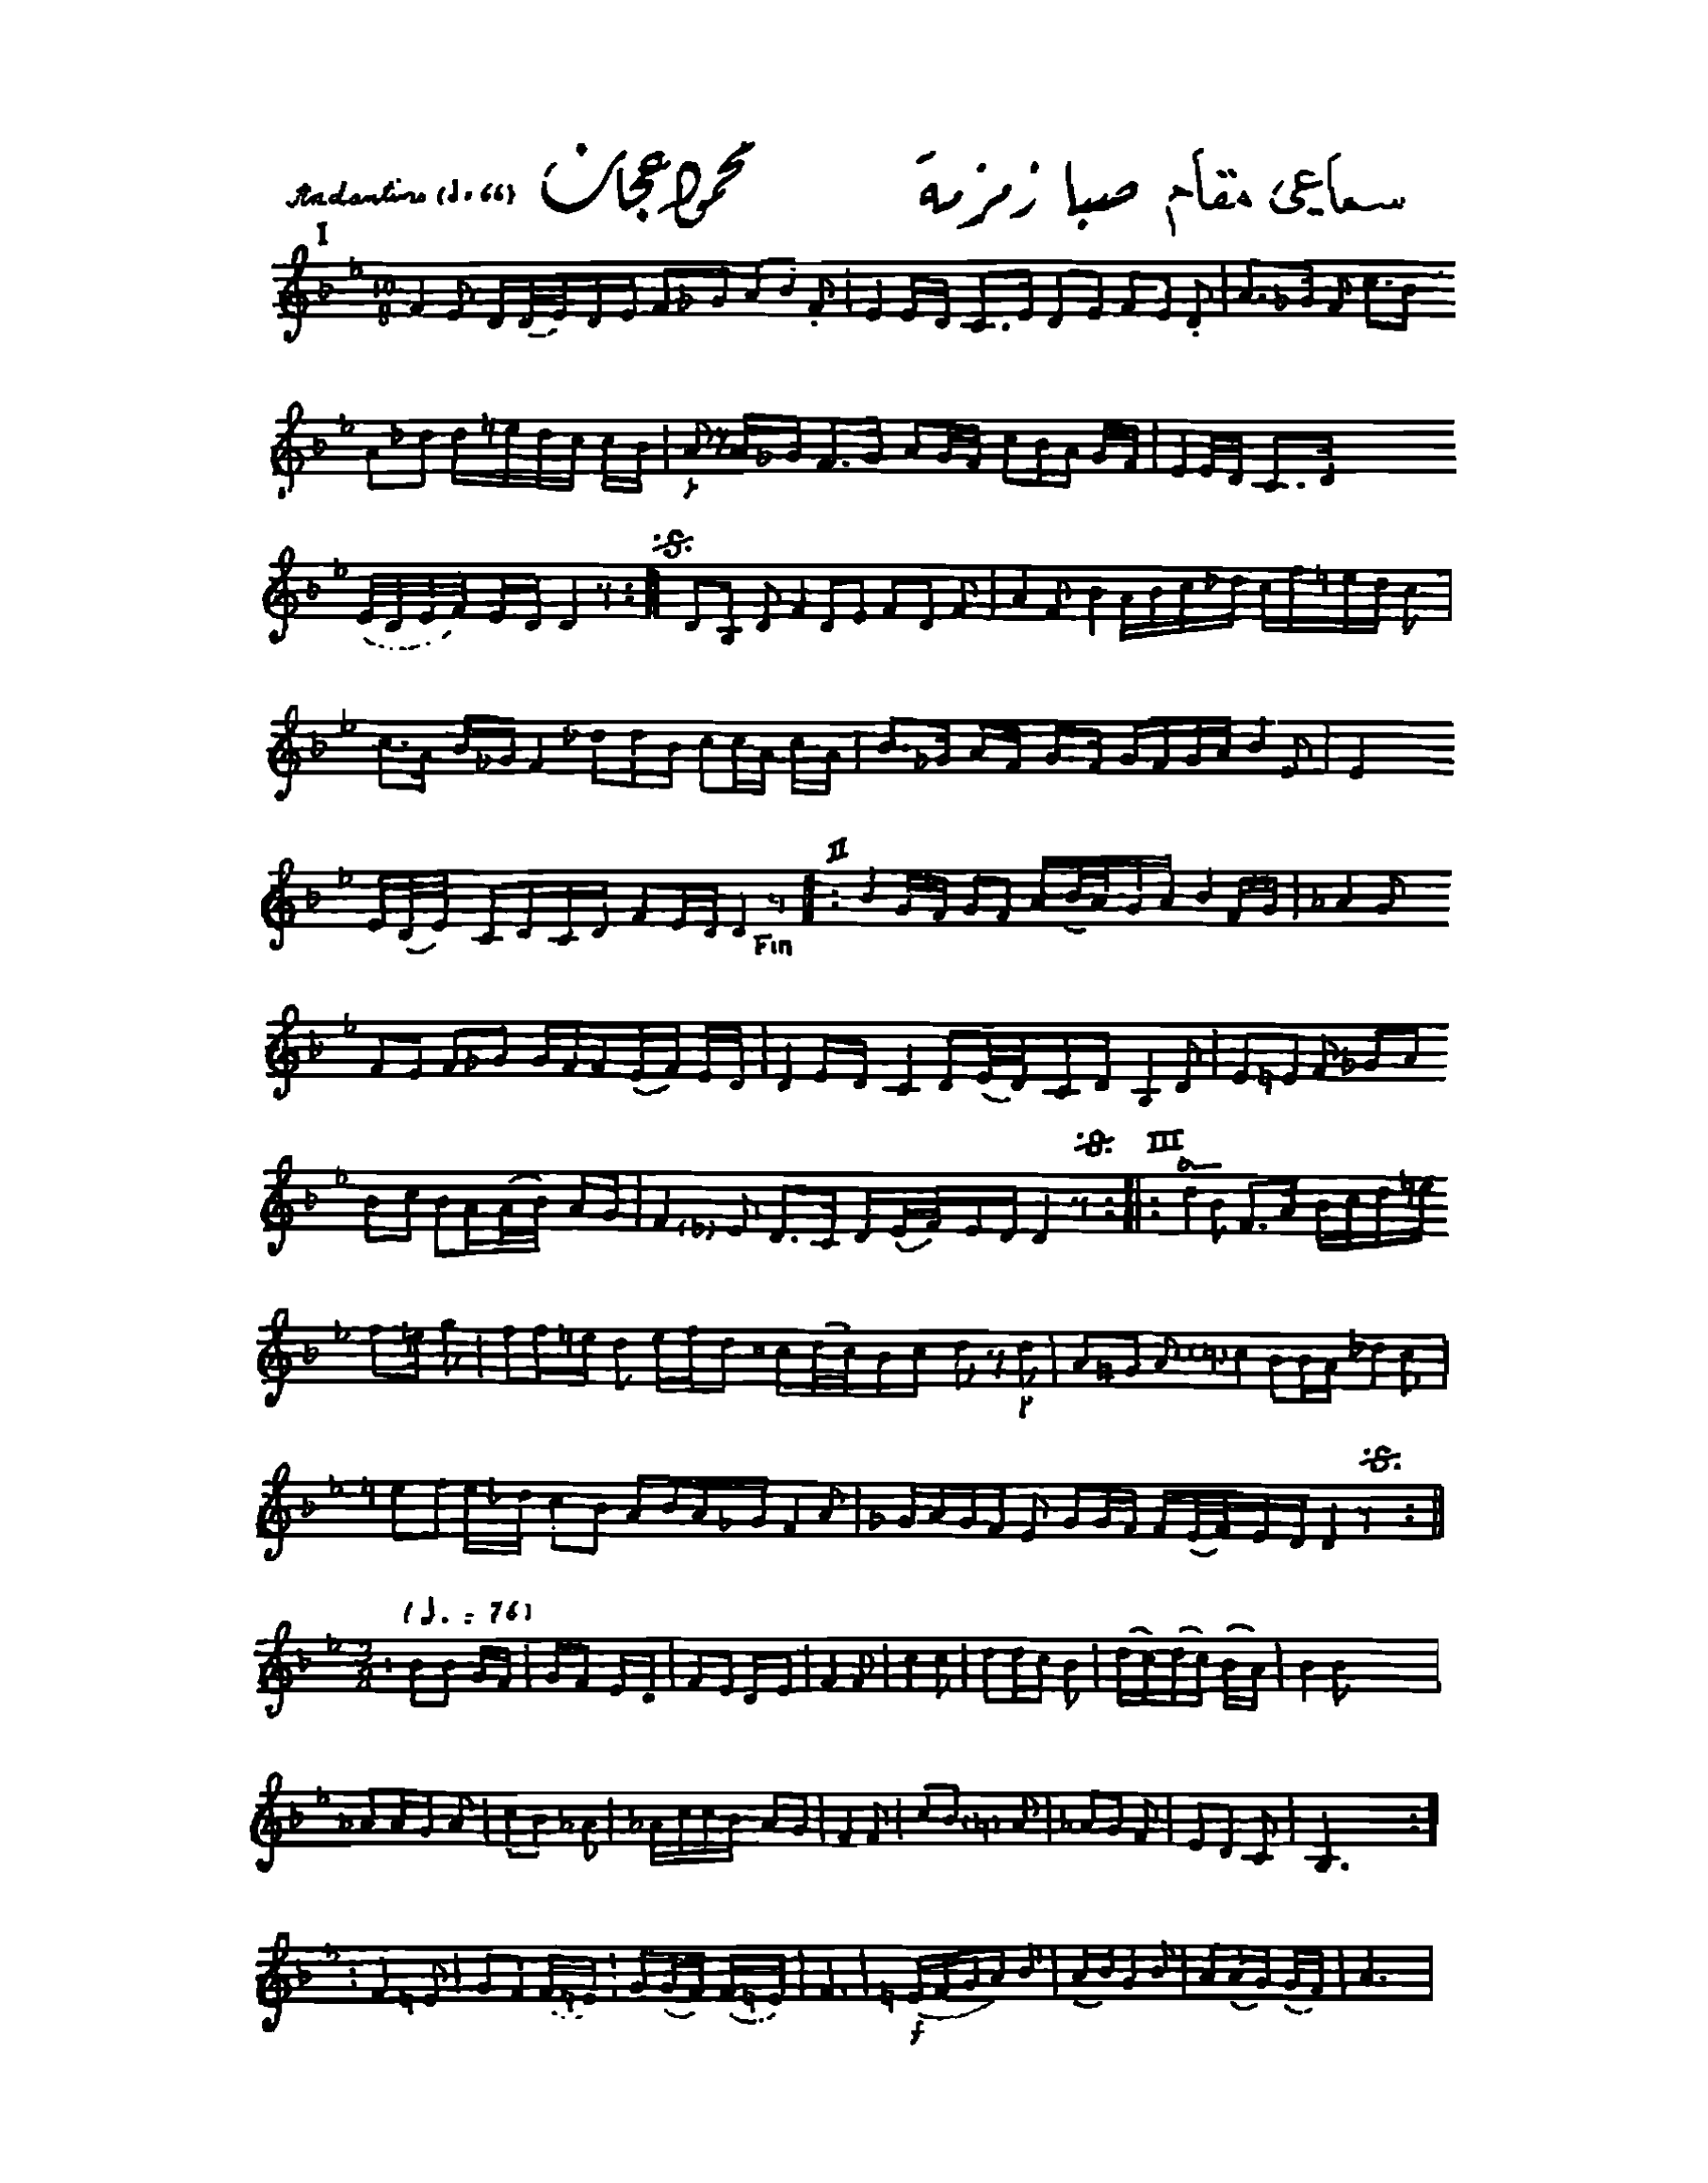 سماعي مقام صبا زمزمة
محمود عجان
Andantino (♩=66)
I
10
8
Fin
II
III
(♩. = 76)
3
f